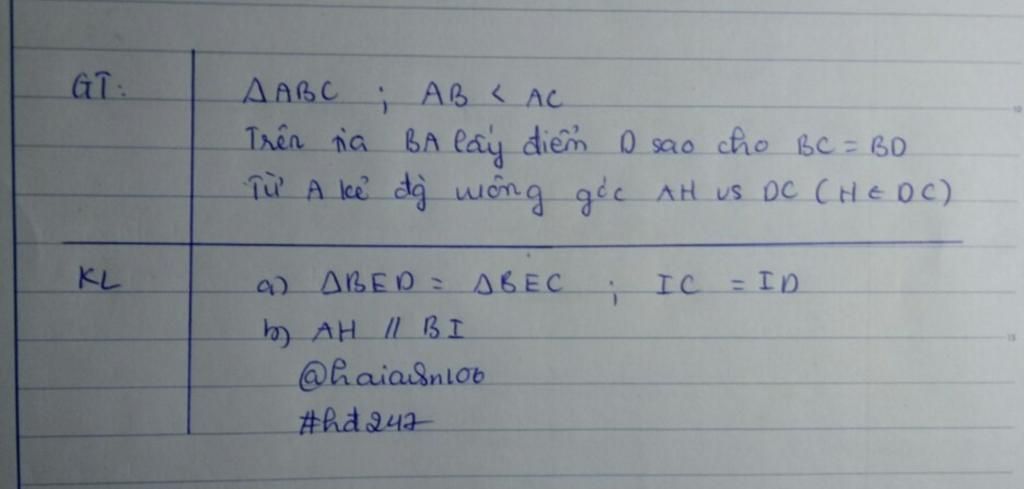 GT:
ΔABC ; AB < AC
Trên tia BA lấy điểm D sao cho BC = BD
Từ A kẻ đg vuông góc AH vs DC (H ∈ DC)
KL
a) ΔBED = ΔBEC ; IC = ID
b) AH // BI
@haia8n106
#hđ247